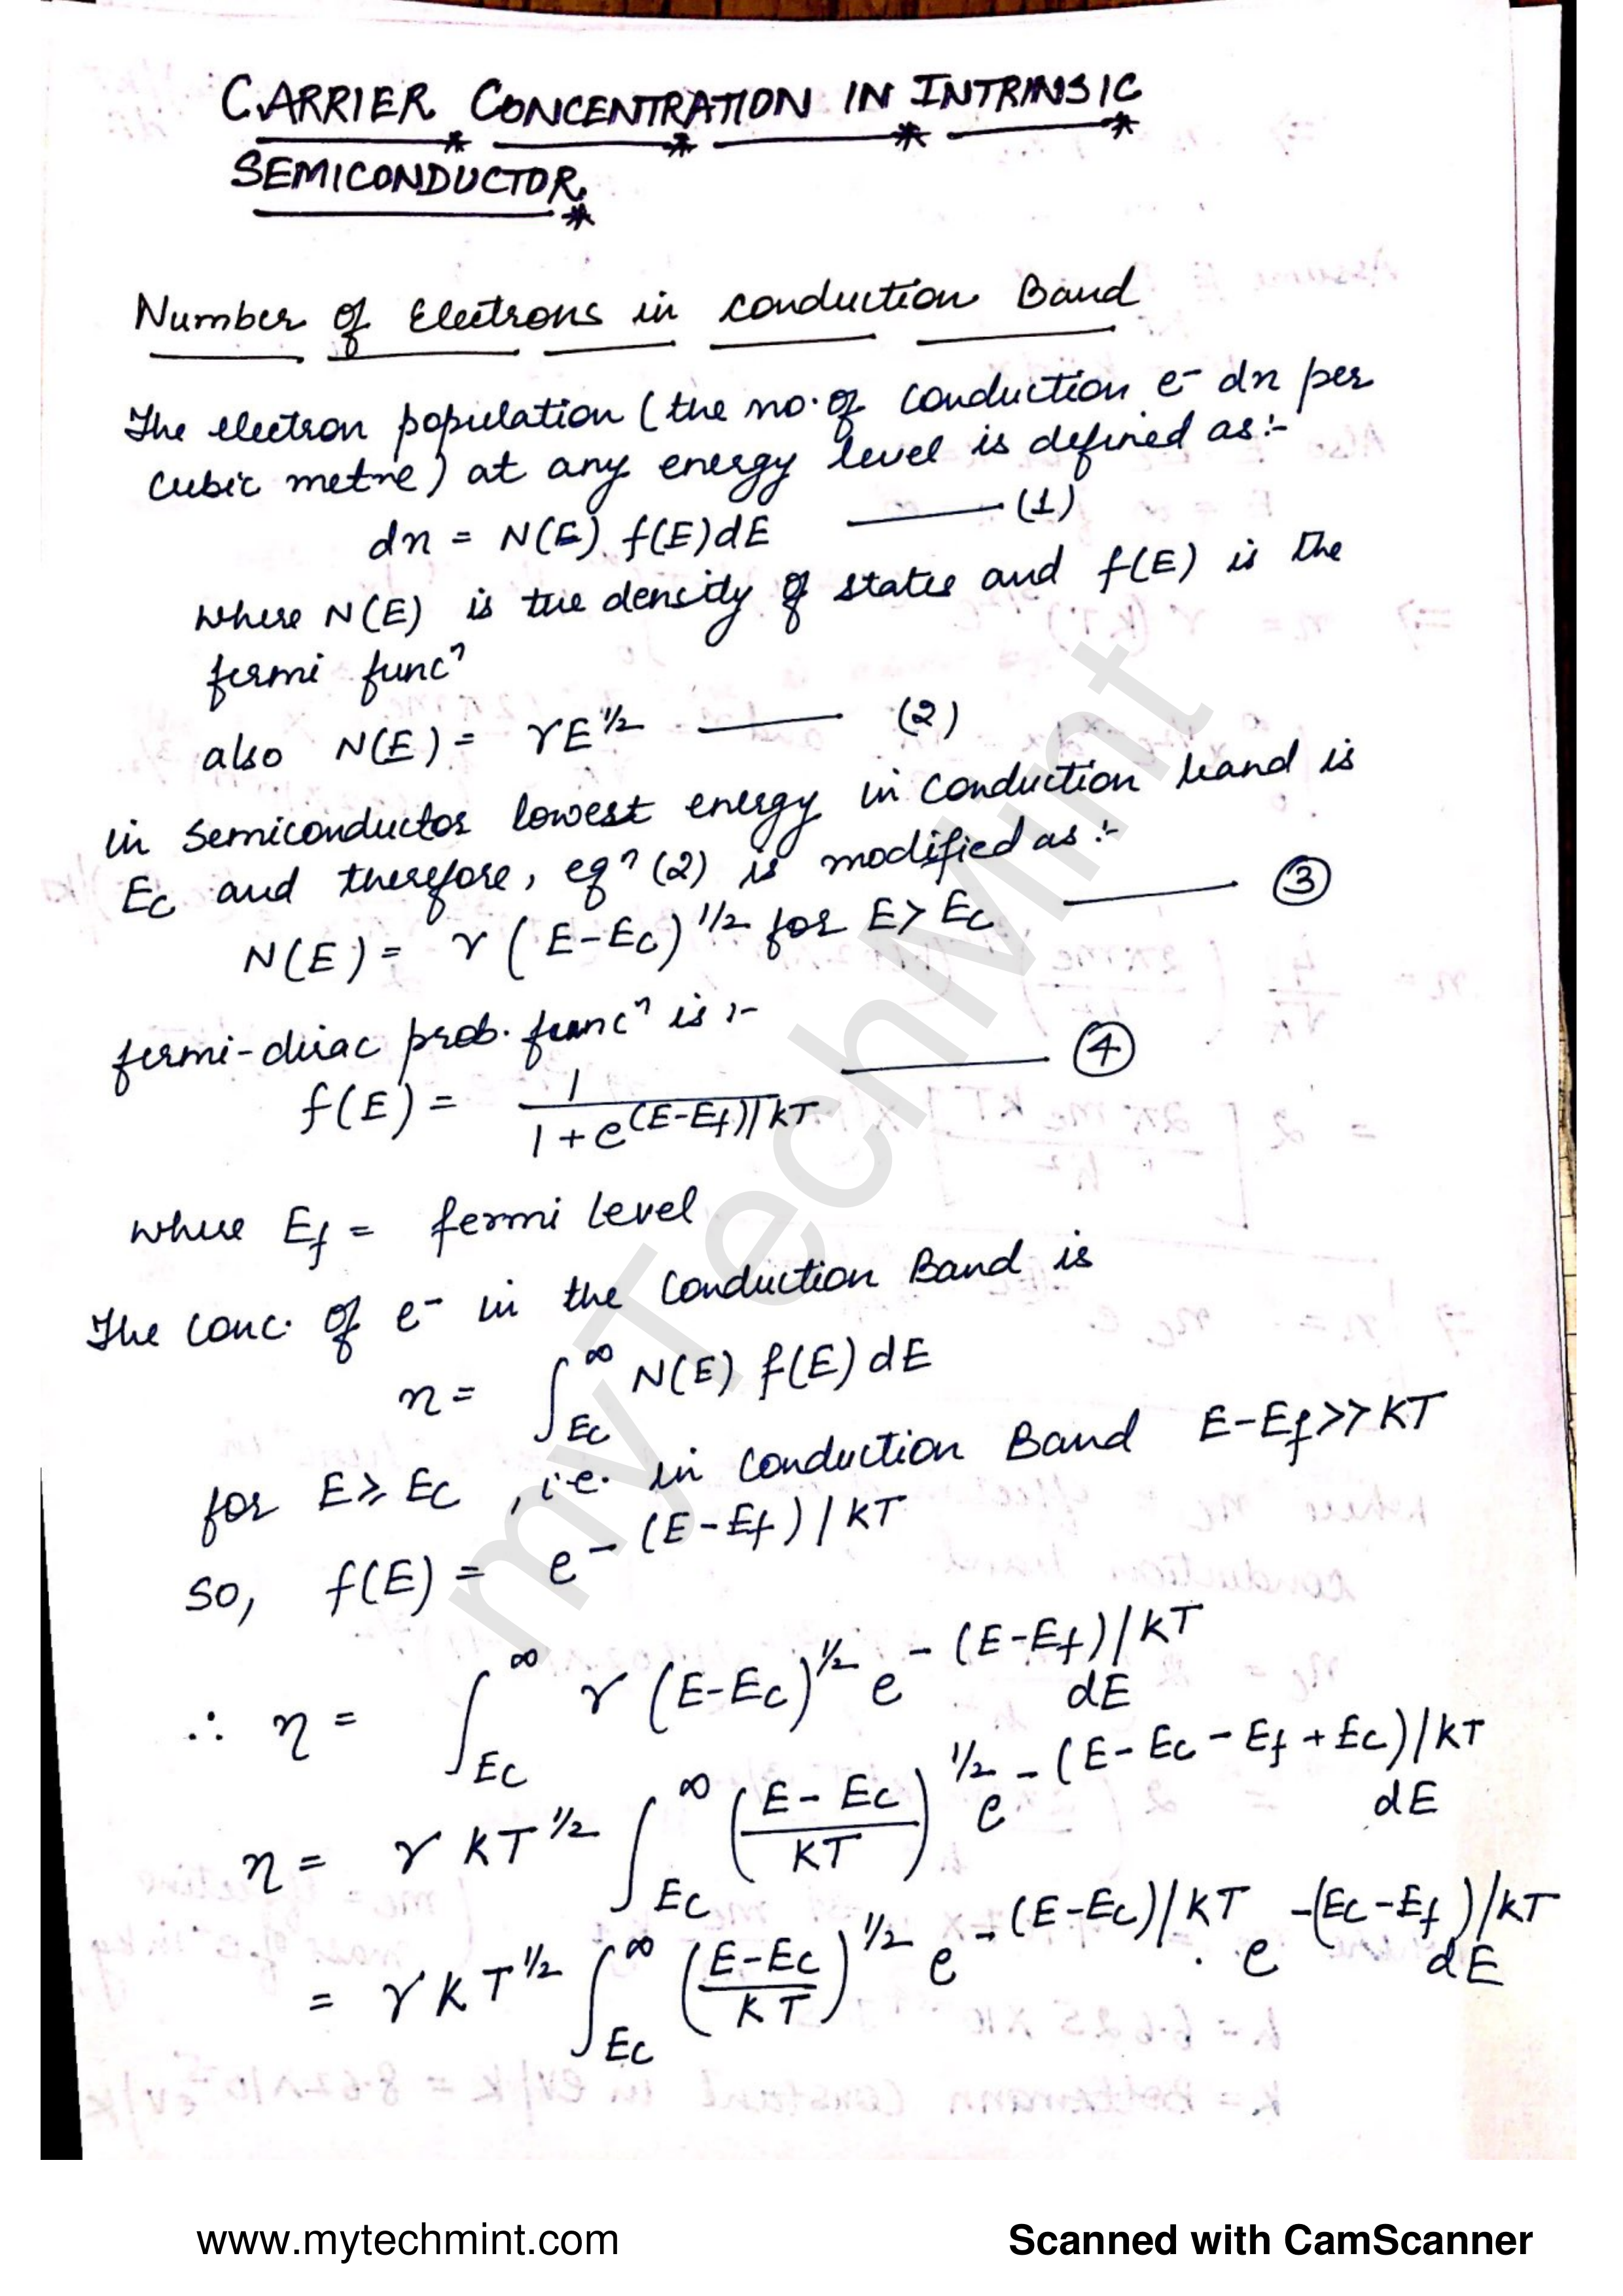 CARRIER CONCENTRATION IN INTRINSIC
SEMICONDUCTOR
Number of Electrons in conduction Band
The electron population (the no. of conduction e⁻ dn per
cubic metre) at any energy level is defined as:-
dn = N(E) f(E)dE ——— (1)
where N(E) is the density of states and f(E) is the
fermi funcⁿ
also N(E) = γE^1/2 ——— (2)
in semiconductor lowest energy in conduction band is
Ec and therefore, eqⁿ (2) is modified as :-
N(E) = γ (E-Ec)^1/2 for E > Ec ——— ③
fermi-dirac prob. funcⁿ is :-
f(E) = 1 / 1 + e^(E-Ef)/kT ——— ④
where Ef = fermi level
The conc. of e⁻ in the conduction Band is
n = ∫_Ec^∞ N(E) f(E) dE
for E ≥ Ec, i.e. in conduction Band E-Ef >> KT
so, f(E) = e^-(E-Ef)/KT
∴ n = ∫_Ec^∞ γ (E-Ec)^1/2 e^-(E-Ef)/KT dE
n = γ KT^1/2 ∫_Ec^∞ (E-Ec / KT)^1/2 e^-(E-Ec-Ef+Ec)/KT dE
= γ KT^1/2 ∫_Ec^∞ (E-Ec / KT)^1/2 e^-(E-Ec)/KT . e^-(Ec-Ef)/KT dE
myTechMint
www.mytechmint.com
Scanned with CamScanner